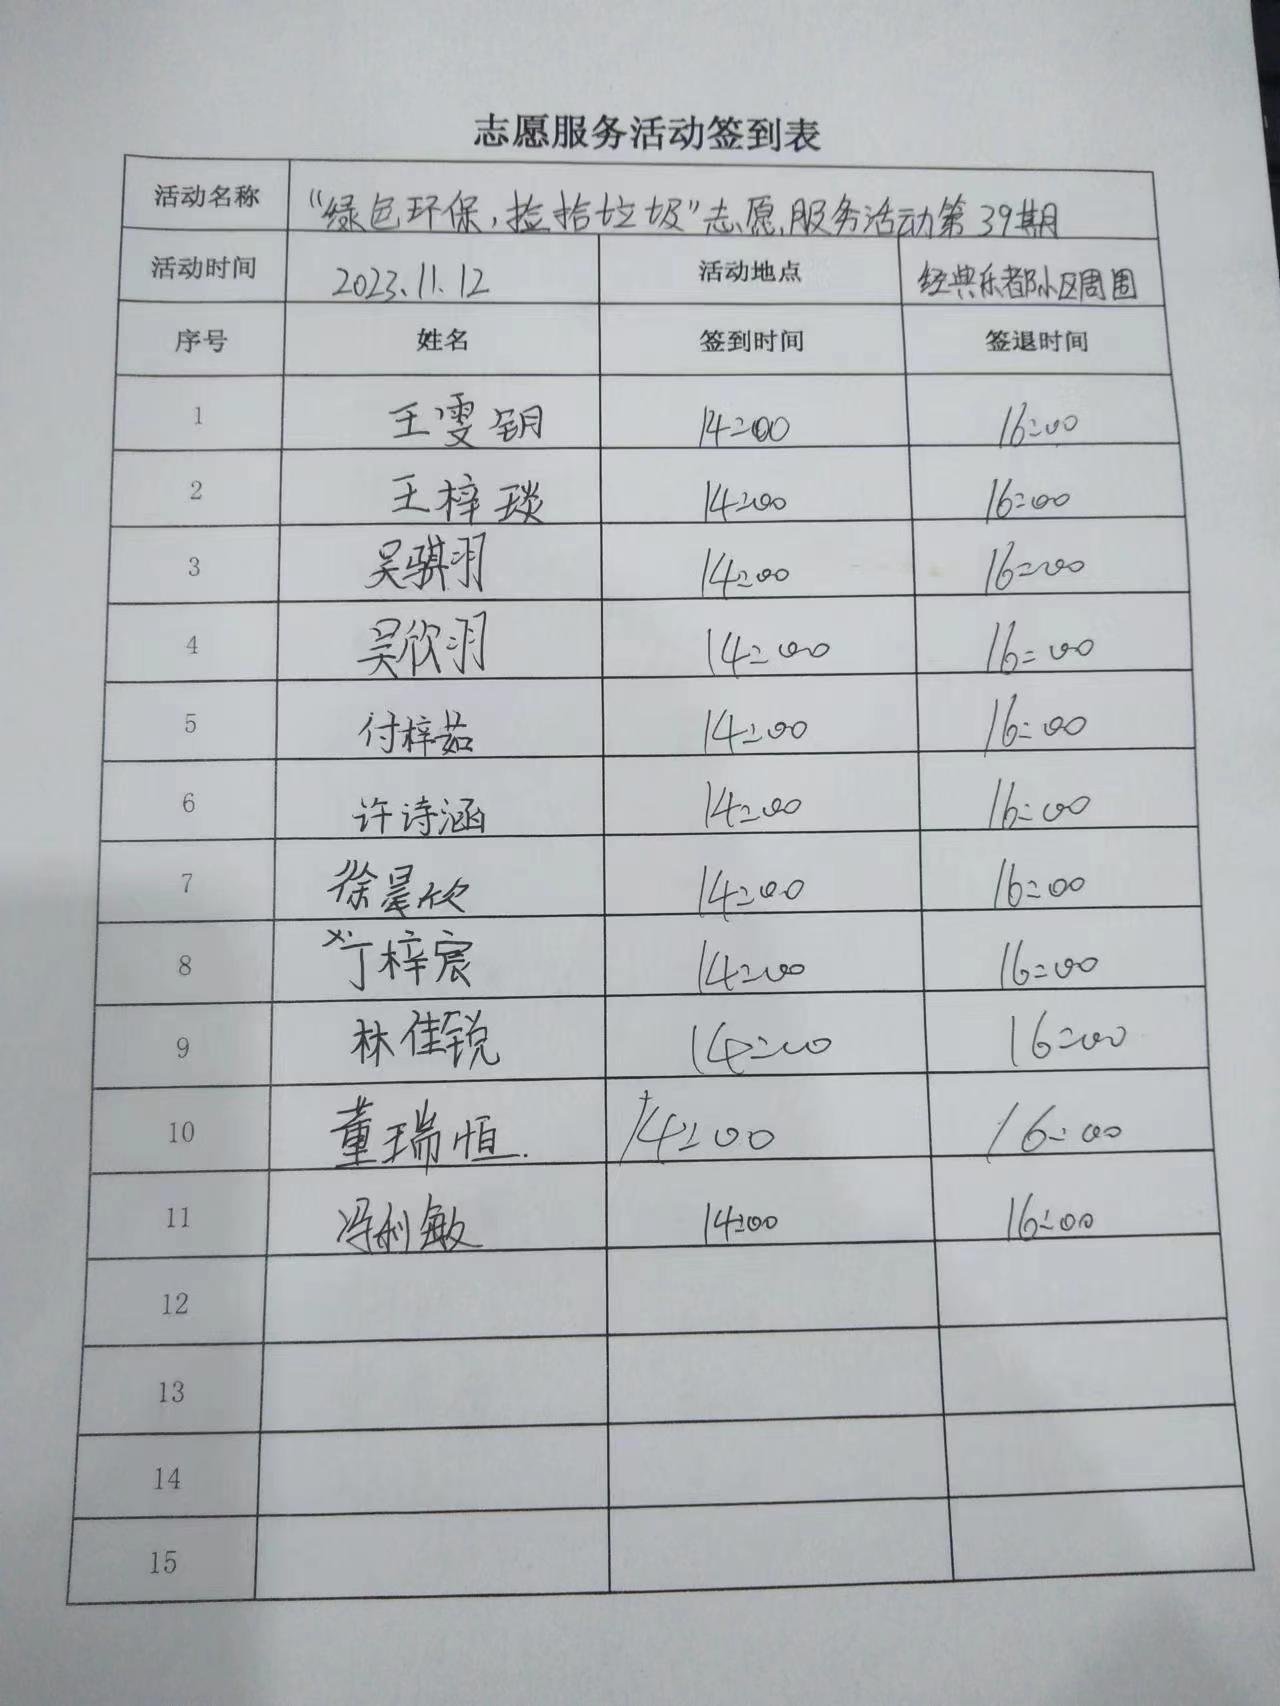 志愿服务活动签到表
活动名称 “绿色环保,捡拾垃圾”志愿服务活动第39期
活动时间 2023.11.12 活动地点 经典乐都小区周围
序号 姓名 签到时间 签退时间
1 王雯钥 14:00 16:00
2 王梓琰 14:00 16:00
3 吴骐羽 14:00 16:00
4 吴欣羽 14:00 16:00
5 付梓茹 14:00 16:00
6 许诗涵 14:00 16:00
7 徐晨欣 14:00 16:00
8 丁梓宸 14:00 16:00
9 林佳锐 14:00 16:00
10 董瑞恒. 14:00 16:00
11 冯利敏 14:00 16:00
12
13
14
15